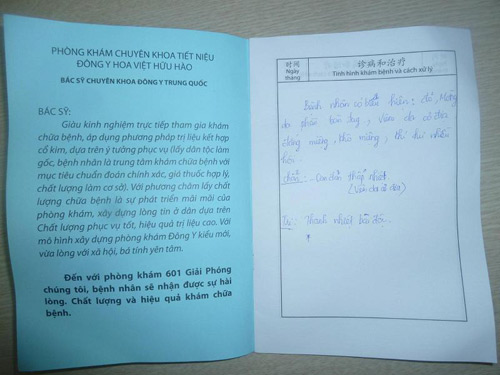 PHÒNG KHÁM CHUYÊN KHOA TIẾT NIỆU
ĐÔNG Y HOA VIỆT HỮU HÀO
BÁC SỸ CHUYÊN KHOA ĐÔNG Y TRUNG QUỐC
BÁC SỸ:
Giàu kinh nghiệm trực tiếp tham gia khám
chữa bệnh, áp dụng phương pháp trị liệu kết hợp
cổ kim, dựa trên ý tưởng phục vụ (lấy dân tộc làm
gốc, bệnh nhân là trung tâm khám chữa bệnh với
mục tiêu chuẩn đoán chính xác, giá thuốc hợp lý,
chất lượng làm cơ sở). Với phương châm lấy chất
lượng chữa bệnh là sự phát triển mãi mãi của
phòng khám, xây dựng lòng tin ở dân dựa trên
Chất lượng phục vụ tốt, hiệu quả trị liệu cao. Với
mô hình xây dựng phòng khám Đông Y kiểu mới,
vừa lòng với xã hội, bả tính yên tâm.
Đến với phòng khám 601 Giải Phóng
chúng tôi, bệnh nhân sẽ nhận được sự hài
lòng. Chất lượng và hiệu quả khám chữa
bệnh.
时间
Ngày
tháng
诊病和治疗
Tình hình khám bệnh và cách xử lý
Bệnh nhân có biểu hiện: da
da phần bàn tay, Viêm da cơ địa
mỏng, khô
hôi.
: thấp nhiệt
(Viêm da cơ địa)
Trị: Thanh nhiệt